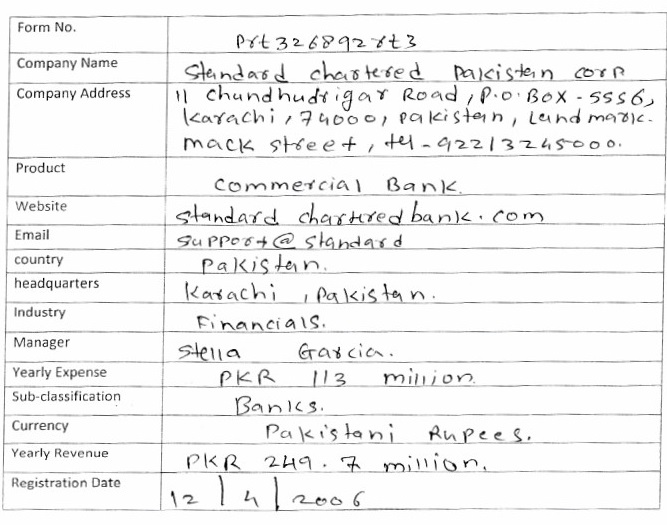 Form No. Prt326892rt3
Company Name Standard chartered Pakistan corp
Company Address 11 Chundhudrigar Road, P.O.BOX-5556,
Karachi, 74000, Pakistan, Landmark-
mack street, tel-92213245000.
Product Commercial Bank.
Website standard charteredbank.com
Email support@standard
country Pakistan.
headquarters Karachi, Pakistan.
Industry Financials.
Manager Stella Garcia.
Yearly Expense PKR 113 million.
Sub-classification Banks.
Currency Pakistani Rupees.
Yearly Revenue PKR 249.7 million.
Registration Date 12/4/2006